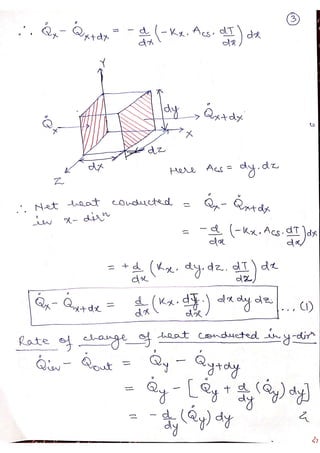 3
∴ Q̇x - Q̇x+dx = - d/dx (-Kx. Acs. dT/dx) dx
Y
dy
Q̇x
Q̇x+dx
X
dz
dx
Z
Here Acs = dy.dz
∴ Net heat conducted = Q̇x - Q̇x+dx
in x-dirⁿ
= -d/dx (-Kx. Acs. dT/dx) dx
= +d/dx (Kx. dy. dz. dT/dx) dx
Q̇x - Q̇x+dx = d/dx (Kx. dT/dx.) dx dy dz ... (1)
Rate of change of heat conducted in y-dirⁿ
Q̇in - Q̇out = Q̇y - Q̇y+dy
= Q̇y - [Q̇y + d/dy (Q̇y) dy]
= - d/dy (Q̇y) dy